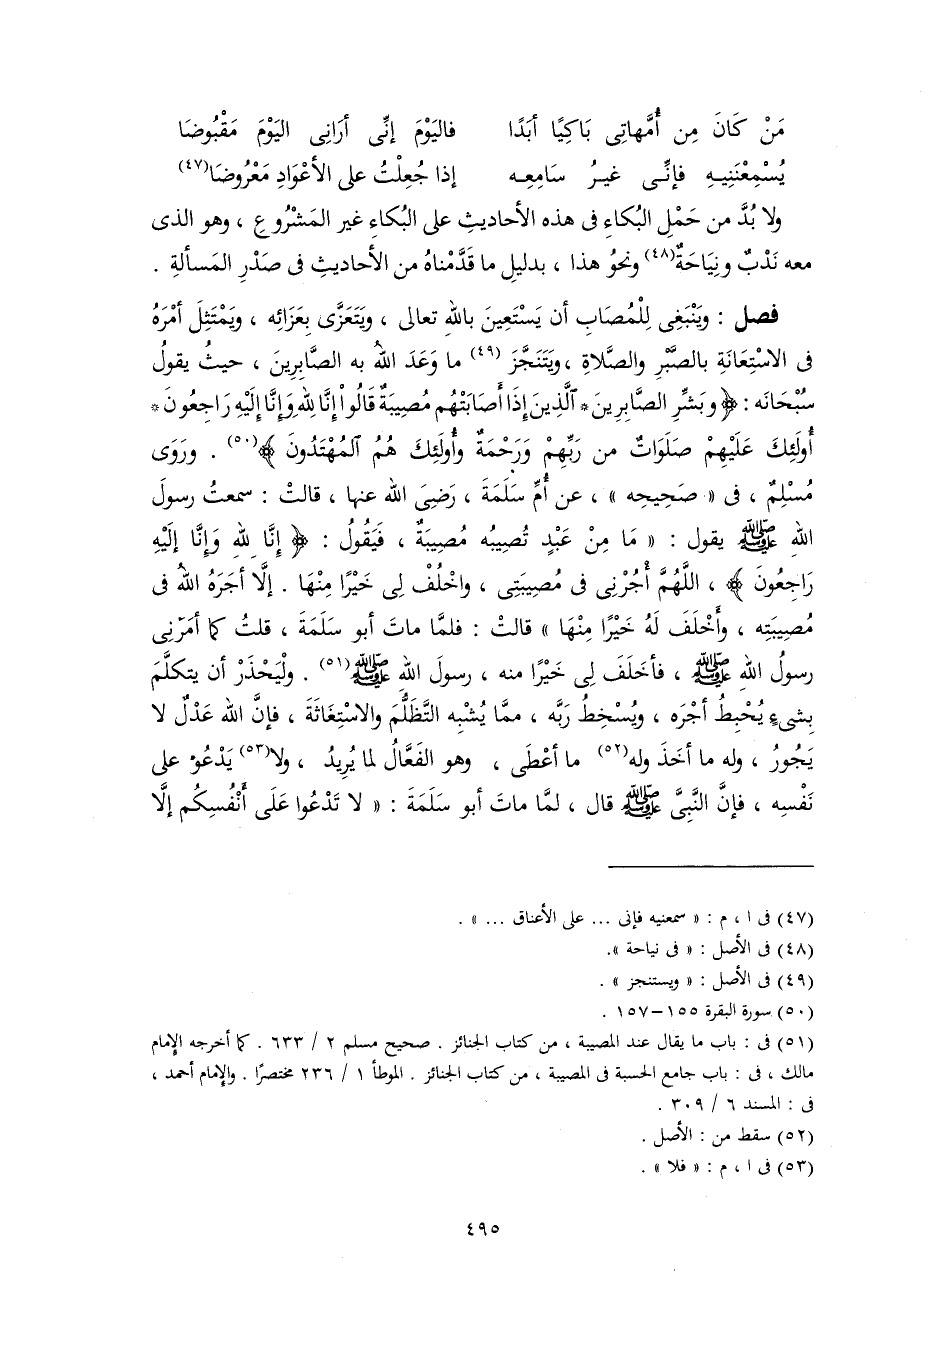 مَنْ كَانَ مِن أُمَّهاتِى بَاكِيًا أبَدًا     فاليَوْمَ إنِّى أرَانِى اليَوْمَ مَقْبُوضَا
يُسْمِعْنَنِيـهِ فإنِّـى غيـرُ سَامِعِـه     إذا جُعِلْتُ على الأعْوَادِ مَعْرُوضَا(٤٧)
ولا بُدَّ من حَمْلِ البُكاءِ فى هذه الأحاديثِ على البُكاءِ غيرِ المَشْرُوعِ ، وهو الذى
معه نَدْبٌ ونِيَاحَةٌ(٤٨) ونحوُ هذا ، بدليلِ ما قَدَّمْناهُ من الأحاديثِ فى صَدْرِ المَسألةِ .
فصل : ويَنْبَغِى لِلْمُصَابِ أن يَسْتَعِينَ باللهِ تعالى ، ويَتَعَزَّى بِعَزَائِه ، ويَمْتَثِلَ أمْرَهُ
فى الاسْتِعَانَةِ بالصَّبْرِ والصَّلاةِ ، ويَتَنَجَّزَ (٤٩) ما وَعَدَ اللهُ به الصَّابِرِينَ ، حيثُ يقولُ
سُبْحَانَه : ﴿ وبَشِّرِ الصَّابِرِينَ * ٱلَّذِينَ إذَا أصَابَتْهُم مُصِيبَةٌ قَالُواْ إنَّا لِلهِ وَإنَّا إلَيْهِ رَاجِعُونَ *
أُولَئِكَ عَلَيْهِمْ صَلَوَاتٌ من رَبِّهِمْ وَرَحْمَةٌ وأُولَئِكَ هُمُ ٱلمُهْتَدُونَ ﴾(٥٠) . ورَوَى
مُسْلِمٌ ، فى « صَحِيحِه » ، عن أُمِّ سَلَمَةَ ، رَضِىَ اللهُ عنها ، قالتْ : سمعتُ رسولَ
اللهِ ﷺ يقول : « مَا مِنْ عَبْدٍ تُصِيبُه مُصِيبَةٌ ، فَيَقُولُ : ﴿ إنَّا لِلهِ وَإنَّا إلَيْهِ
رَاجِعُونَ ﴾ ، اللَّهُمَّ أُجُرْنِى فى مُصِيبَتِى ، واخْلُفْ لِى خَيْرًا مِنْهَا . إلَّا أجَرَهُ اللهُ فى
مُصِيبَتِه ، وأَخْلَفَ لَهُ خَيْرًا مِنْهَا » قالتْ : فلمَّا ماتَ أبو سَلَمَةَ ، قلتُ كما أمَرَنِى
رسولُ اللهِ ﷺ ، فأخلَفَ لِى خَيْرًا منه ، رسولَ اللهِ ﷺ(٥١) . ولْيَحْذَرْ أن يتكلَّمَ
بشىءٍ يُحْبِطُ أجْرَه ، ويُسْخِطُ رَبَّه ، ممَّا يُشْبِه التَّظَلُّمَ والاسْتِغَاثَةَ ، فإنَّ الله عَدْلٌ لا
يَجُورُ ، وله ما أخَذَ وله(٥٢) ما أعْطَى ، وهو الفَعَّالُ لما يُرِيدُ ، ولا(٥٣) يَدْعُوْ على
نَفْسِه ، فإنَّ النَّبِىَّ ﷺ قال ، لمَّا ماتَ أبو سَلَمَةَ : « لا تَدْعُوا عَلَى أَنْفُسِكُم إلَّا
(٤٧) فى ا ، م : « سمعنيه فإنى ... على الأعناق ... » .
(٤٨) فى الأصل : « فى نياحة ».
(٤٩) فى الأصل : « ويستنجز » .
(٥٠) سورة البقرة ١٥٥–١٥٧ .
(٥١) فى : باب ما يقال عند المصيبة ، من كتاب الجنائز . صحيح مسلم ٢ / ٦٣٣ . كما أخرجه الإمام
مالك ، فى : باب جامع الحسبة فى المصيبة ، من كتاب الجنائز . الموطأ ١ / ٢٣٦ مختصرًا . والإمام أحمد ،
فى : المسند ٦ / ٣٠٩ .
(٥٢) سقط من : الأصل .
(٥٣) فى ا ، م : « فلا » .
٤٩٥